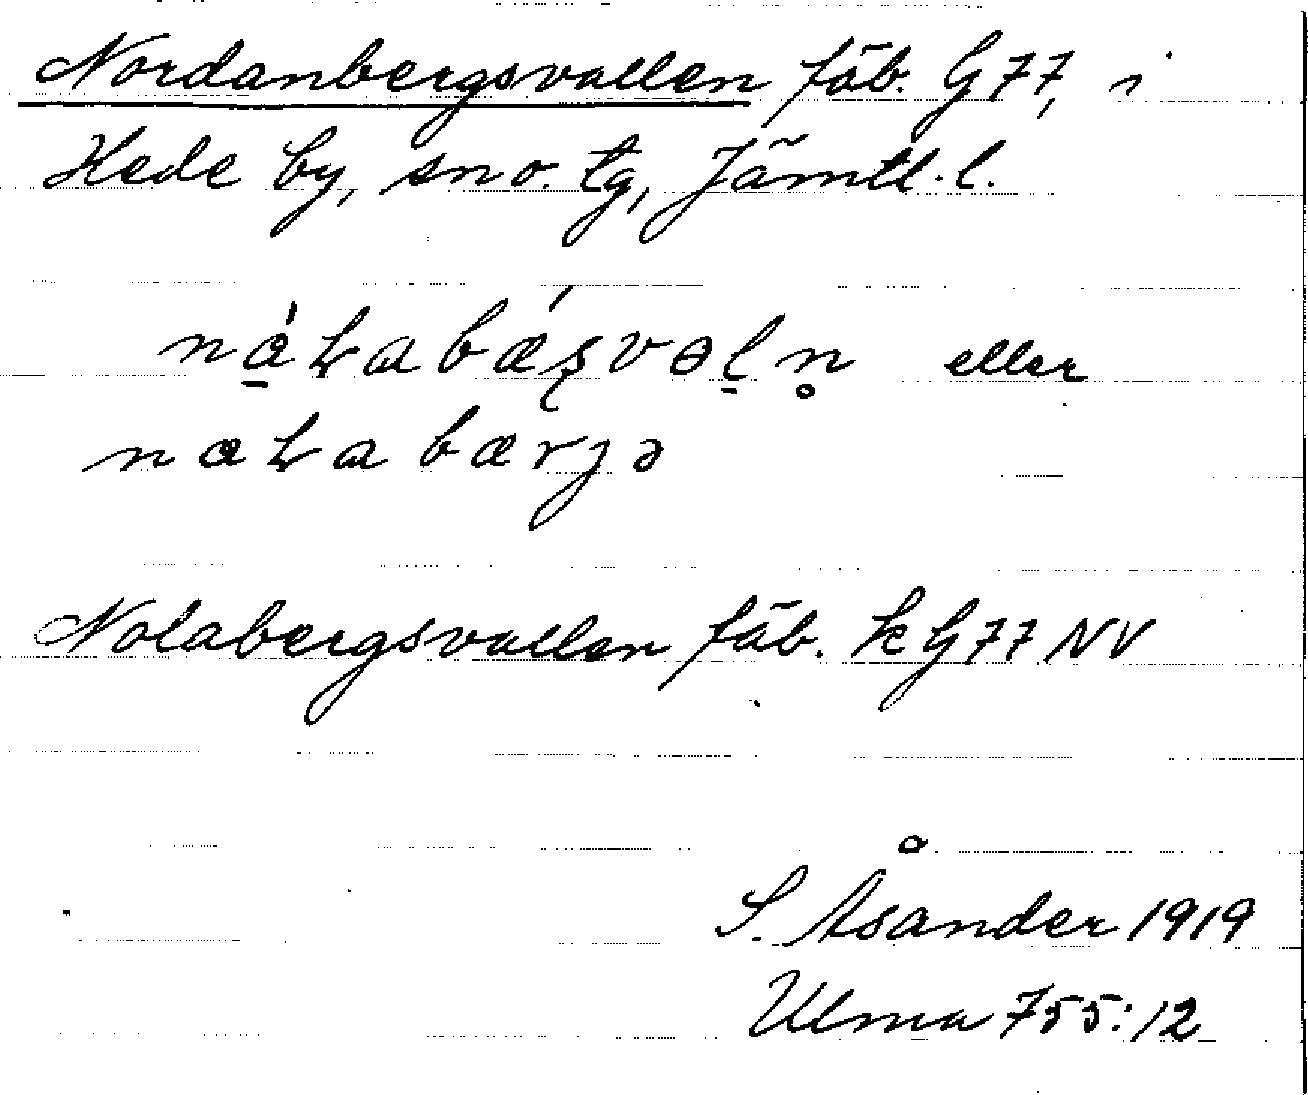 Nordanbergsvallen fäb. G77, i
Hede by, sn o. tg, Jämtl. l.
eller
Nolabergsvallen fäb. k G77 NV
S. Åsander 1919
Ulma 755:12